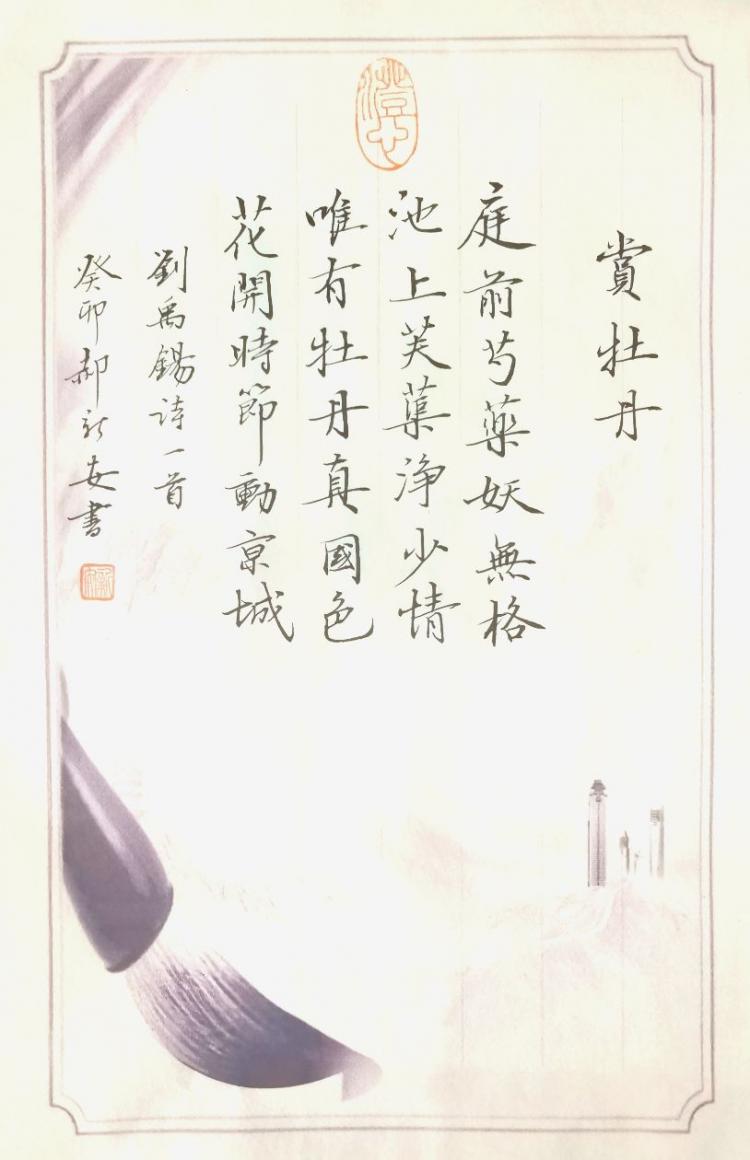 賞牡丹
庭前芍藥妖無格
池上芙蕖浄少情
唯有牡丹真國色
花開時節動亰城
劉禹錫詩一首
癸卯郝新安書
澄心